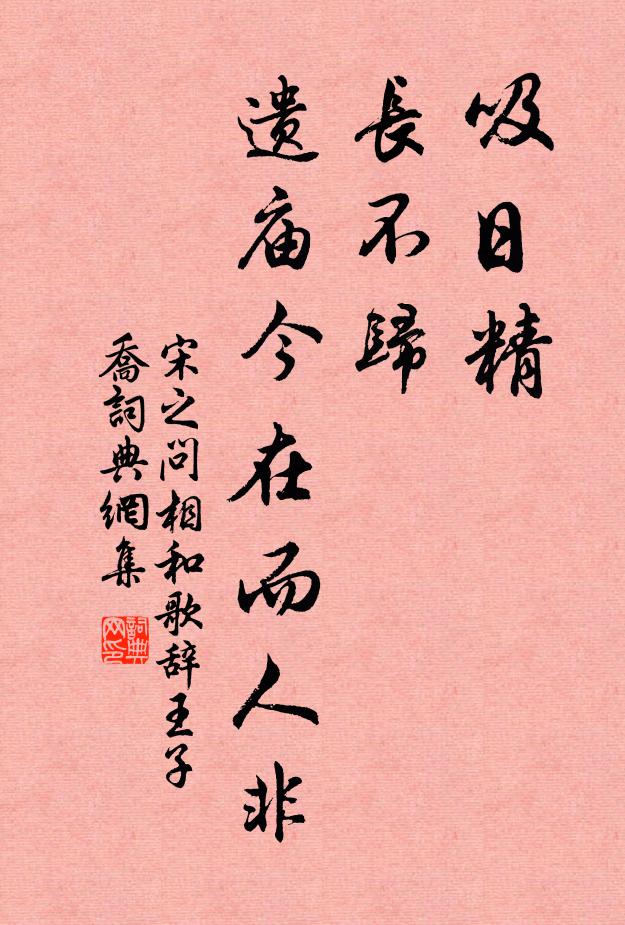 吸日精
長不歸
遗庙今在而人非
宋之问相和歌辞王子
喬詞典網集
詞典
网印